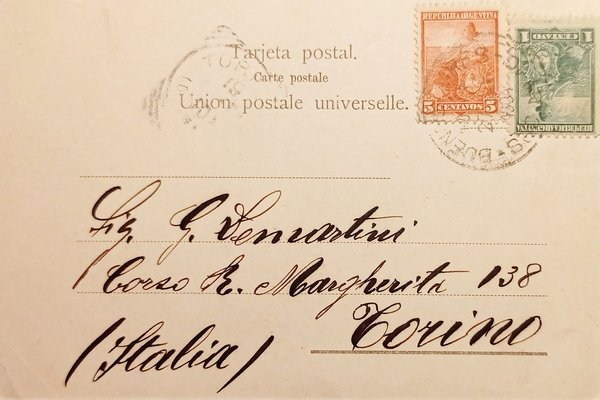 Tarjeta postal.
Carte postale
Union postale universelle.
REPUBLICA ARGENTINA
5 CENTAVOS 5
1 CENTAVO 1
REPUBLICA ARGENTINA
BUEN
Sig. G. Demartini
Corso R. Margherita 138
Torino
(Italia)